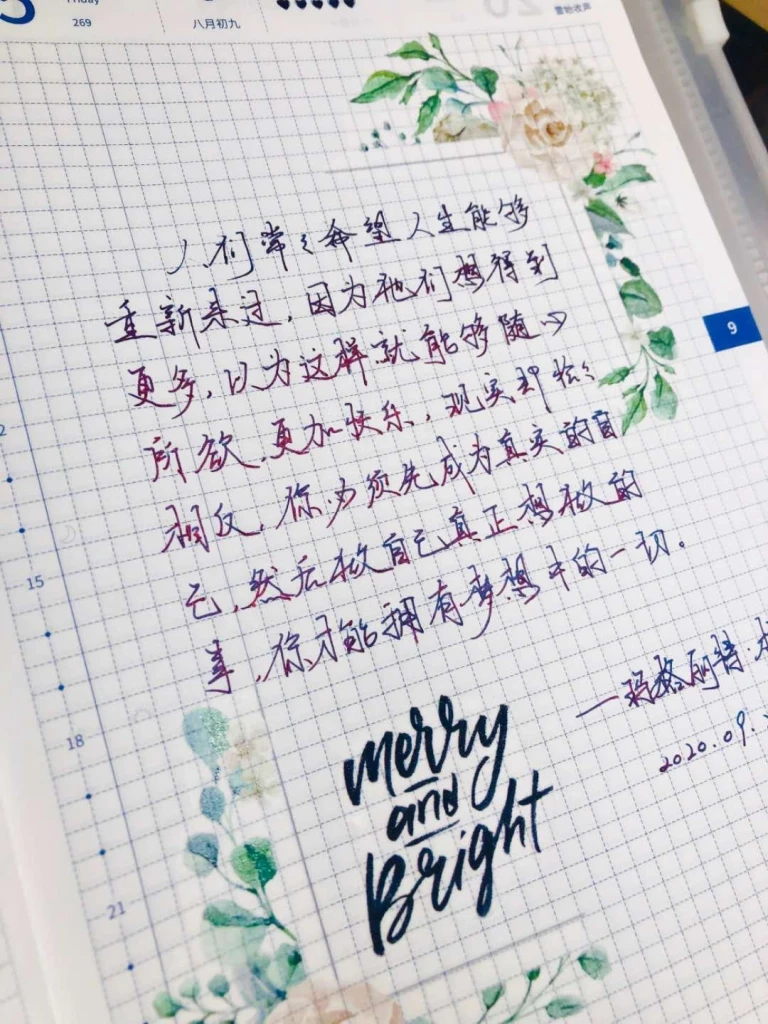 Friday
269
八月初九
雷始收声
人们常々希望人生能够
重新来过，因为他们想得到
更多，以为这样就能够随心
所欲，更加快乐，现实却恰々
相反，你必须先成为真实的自
己，然后做自己真正想做的
事，你才能拥有梦想中的一切。
—玛格丽特·
2020.09.
9
15
18
21
merry
and
Bright